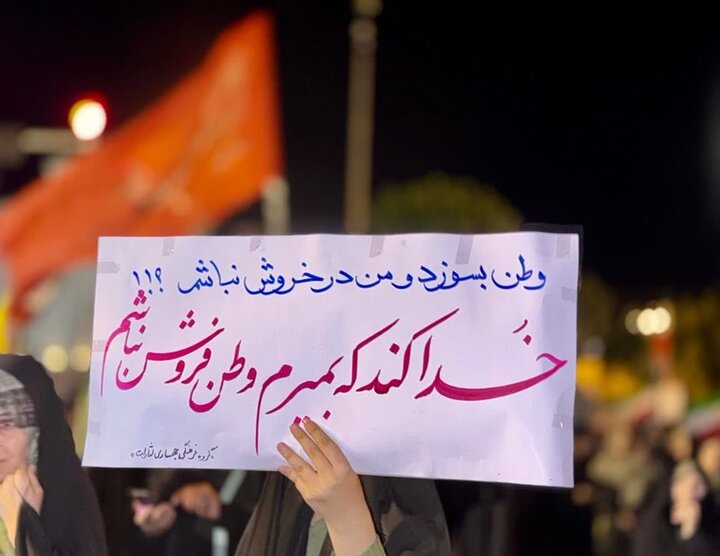 وطن بسوزد و من در خروش نباشم ؟!!
خُدا کند که بمیرم وطن فروش نباشم
گروه فرهنگی جهادی لثارات